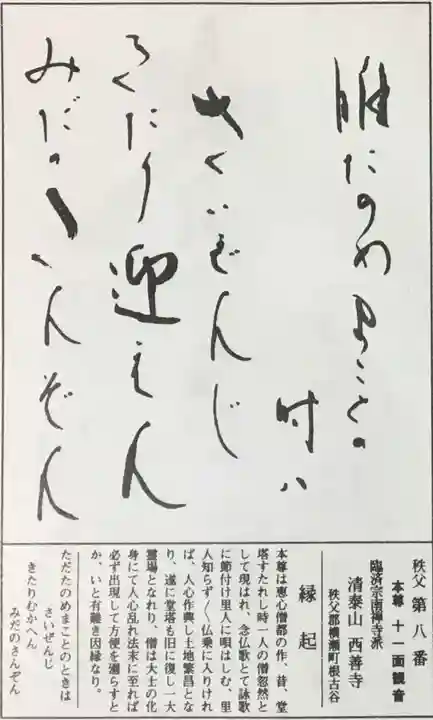 唯たのめまことの
時ハ
さいぜんじ
きたり迎えん
みだのさんぞん
秩父 第八番
本尊 十一面観音
臨済宗南禅寺派
清泰山 西善寺
秩父郡横瀬町根古谷
縁起
本尊は恵心僧都の作、昔、堂
塔すたれし時一人の僧忽然と
して現はれ、念仏歌とて詠歌
に節付け里人に唄はしむ、里
人知らず〳〵仏乗に入りけれ
ば、人心作興し土地繁昌とな
り、遂に堂塔も旧に復し一大
霊場となれり、僧は大士の化
身にて人心乱れ法末に至れば
必ず出現して方便を廻らすと
か、いと有難き因縁なり。
ただたのめまことのときは
さいぜんじ
きたりむかへん
みだのさんぞん